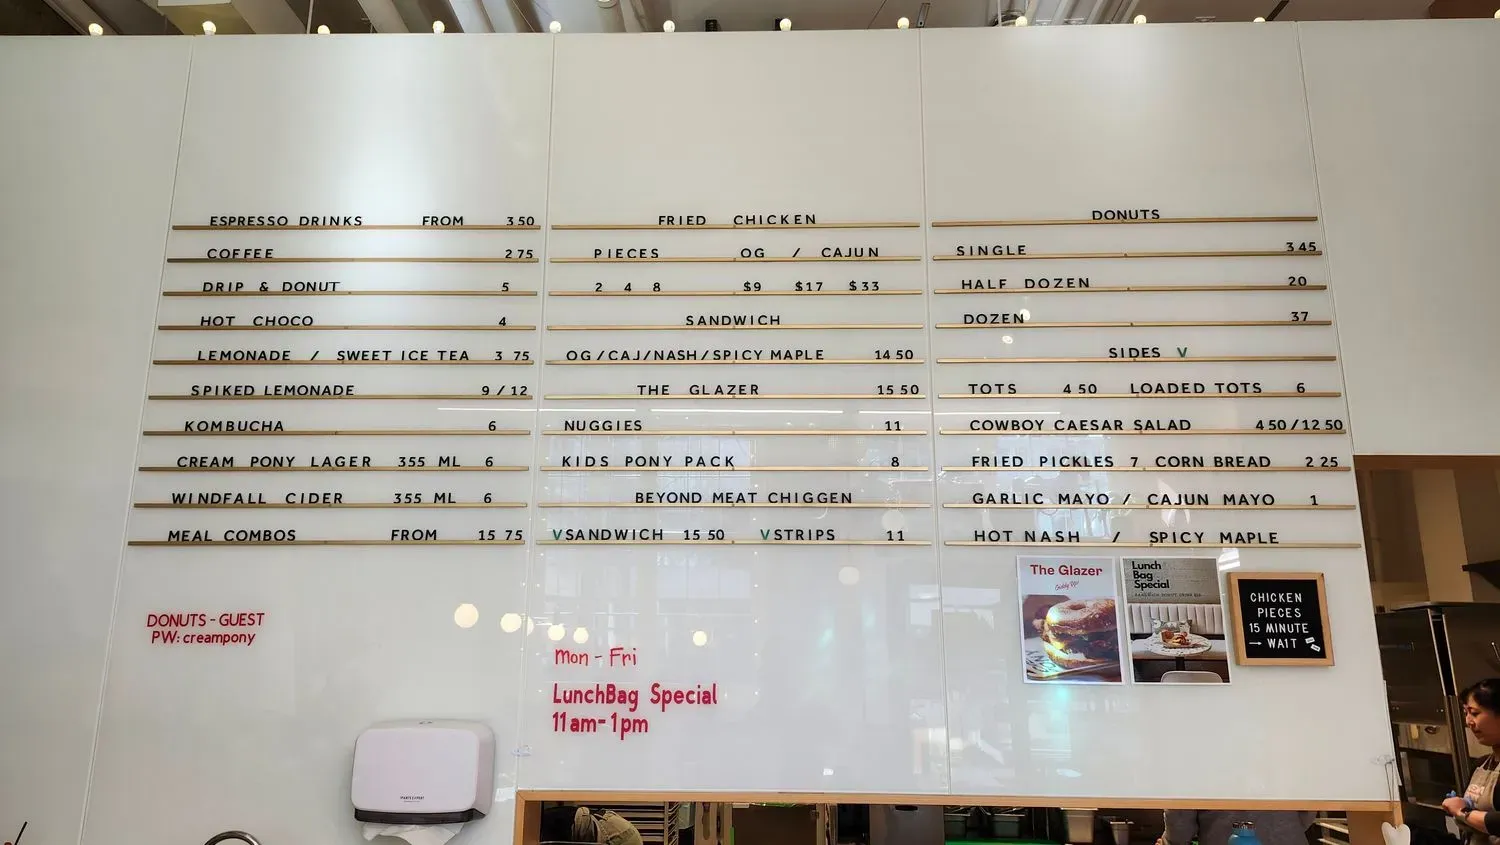 ESPRESSO DRINKS FROM 3 50
COFFEE 2 75
DRIP & DONUT 5
HOT CHOCO 4
LEMONADE / SWEET ICE TEA 3 75
SPIKED LEMONADE 9 / 12
KOMBUCHA 6
CREAM PONY LAGER 355 ML 6
WINDFALL CIDER 355 ML 6
MEAL COMBOS FROM 15 75
DONUTS - GUEST
PW: creampony
FRIED CHICKEN
PIECES OG / CAJUN
2 4 8 $9 $17 $33
SANDWICH
OG/CAJ/NASH/SPICY MAPLE 14 50
THE GLAZER 15 50
NUGGIES 11
KIDS PONY PACK 8
BEYOND MEAT CHIGGEN
V SANDWICH 15 50 V STRIPS 11
mon - Fri
LunchBag Special
11am-1pm
DONUTS
SINGLE 3 45
HALF DOZEN 20
DOZEN 37
SIDES V
TOTS 4 50 LOADED TOTS 6
COWBOY CAESAR SALAD 4 50/12 50
FRIED PICKLES 7 CORN BREAD 2 25
GARLIC MAYO / CAJUN MAYO 1
HOT NASH / SPICY MAPLE
The Glazer
Giddy Up!
Lunch
Bag
Special
CHICKEN
PIECES
15 MINUTE
→ WAIT